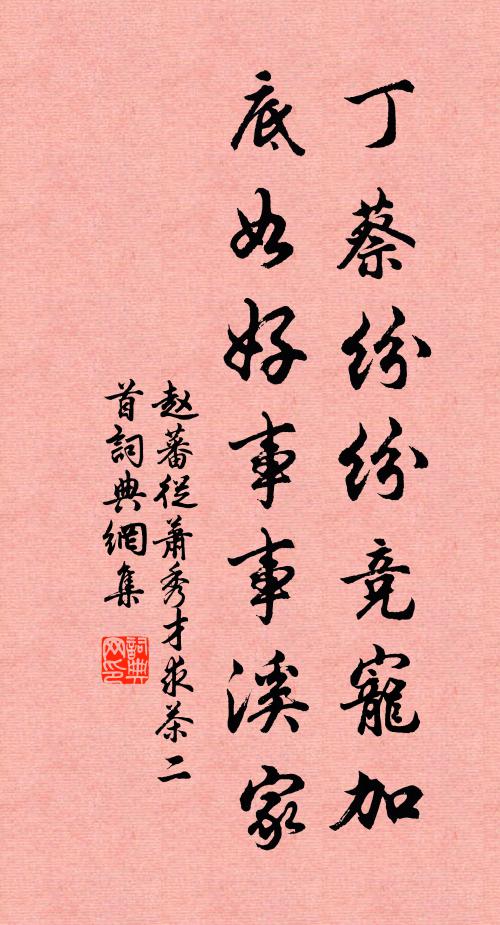 丁蔡紛紛竞寵加
底如好事事溪家
赵蕃從蕭秀才求茶二
首詞典網集
詞典
网印